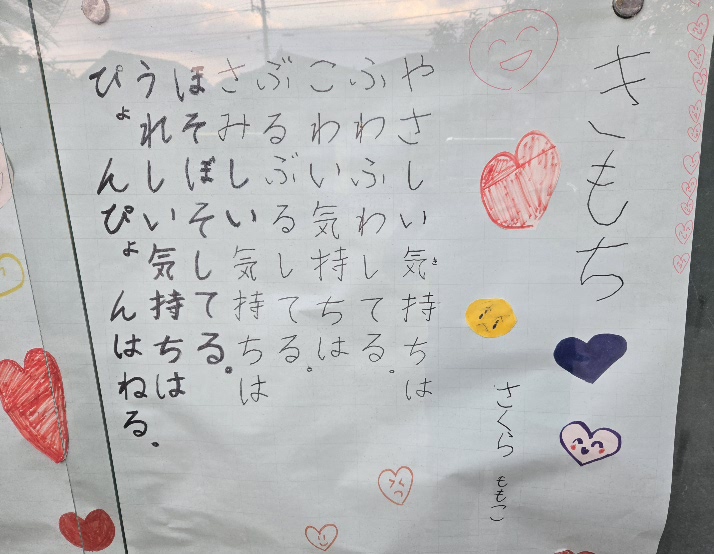 きもち
さくら ももこ
やさしい気持ちは
き
ふわふわしてる。
こわい気持ちは
ぶるぶるしてる。
さみしい気持ちは
ほそぼそしてる。
うれしい気持ちは
ぴょんぴょんはねる。